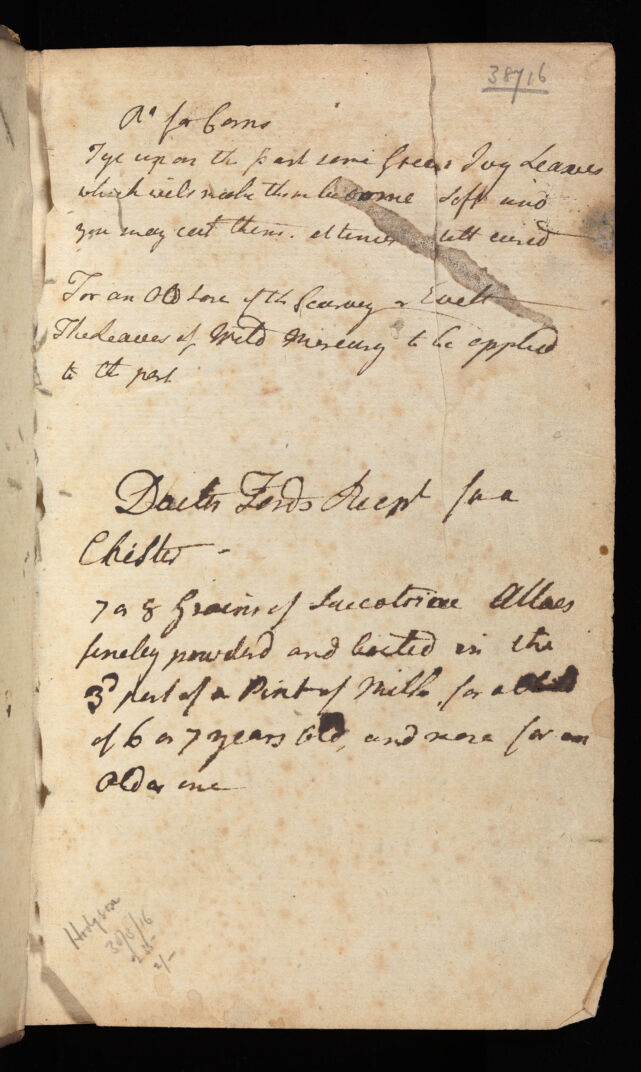 38716
Rt for Corns
Tye upon the part some Green Ivy Leaves
which will make them become Soft and
you may cut them. at times till cured
For an Old Sore if the Scurvey or Evell
The Leaves of Wild Mercury to be applied
to the part
Docter Fords Recept for a
Chister
7 or 8 Grains of Succotrine Alloes
fineley powderd and boiled in the
3d part of a Pint of Milk, for a Child
of 6 or 7 years Old, and more for an
Older one
Hodgson
30/5/16
2/-